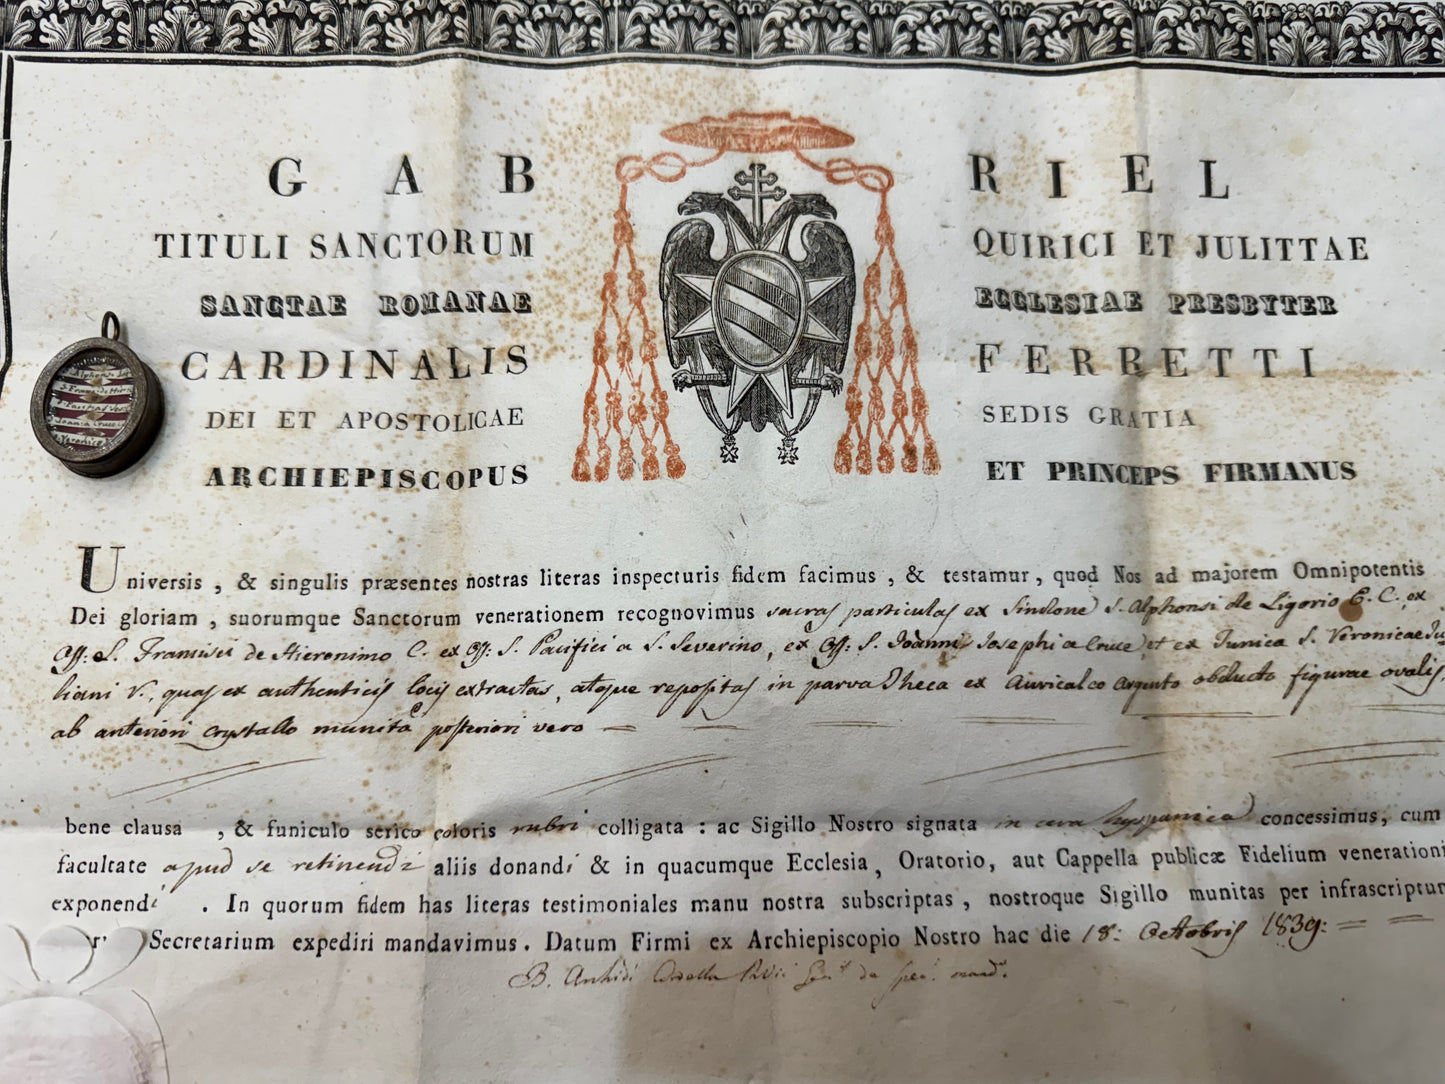 GABRIEL
TITULI SANCTORUM QUIRICI ET JULITTAE
SANCTAE ROMANAE ECCLESIAE PRESBYTER
CARDINALIS FERRETTI
DEI ET APOSTOLICAE SEDIS GRATIA
ARCHIEPISCOPUS ET PRINCEPS FIRMANUS
Universis, & singulis præsentes nostras literas inspecturis fidem facimus, & testamur, quod Nos ad majorem Omnipotentis
Dei gloriam, suorumque Sanctorum venerationem recognovimus sacras particulas ex Sindone S. Alphonsi de Ligorio E. C., ex
Oss: S. Francisci de Hieronimo C. ex Oss: S. Pacifici a S. Severino, ex Oss: S. Joannis Josephi a Cruce, et ex Tunica S. Veronicae Ju
liani V., quas ex authenticis locis extractas, atque repositas in parva Theca ex Auricalco Argento obducto figurae ovalis,
ab anteriori crystallo munita posteriori vero
bene clausa, & funiculo serico coloris rubri colligata: ac Sigillo Nostro signata in cera hyspanica concessimus, cum
facultate apud se retinendi aliis donandi & in quacumque Ecclesia, Oratorio, aut Cappella publicæ Fidelium venerationi
exponendi. In quorum fidem has literas testimoniales manu nostra subscriptas, nostroque Sigillo munitas per infrascriptum
Secretarium expediri mandavimus. Datum Firmi ex Archiepiscopio Nostro hac die 18: Octobris 1839: